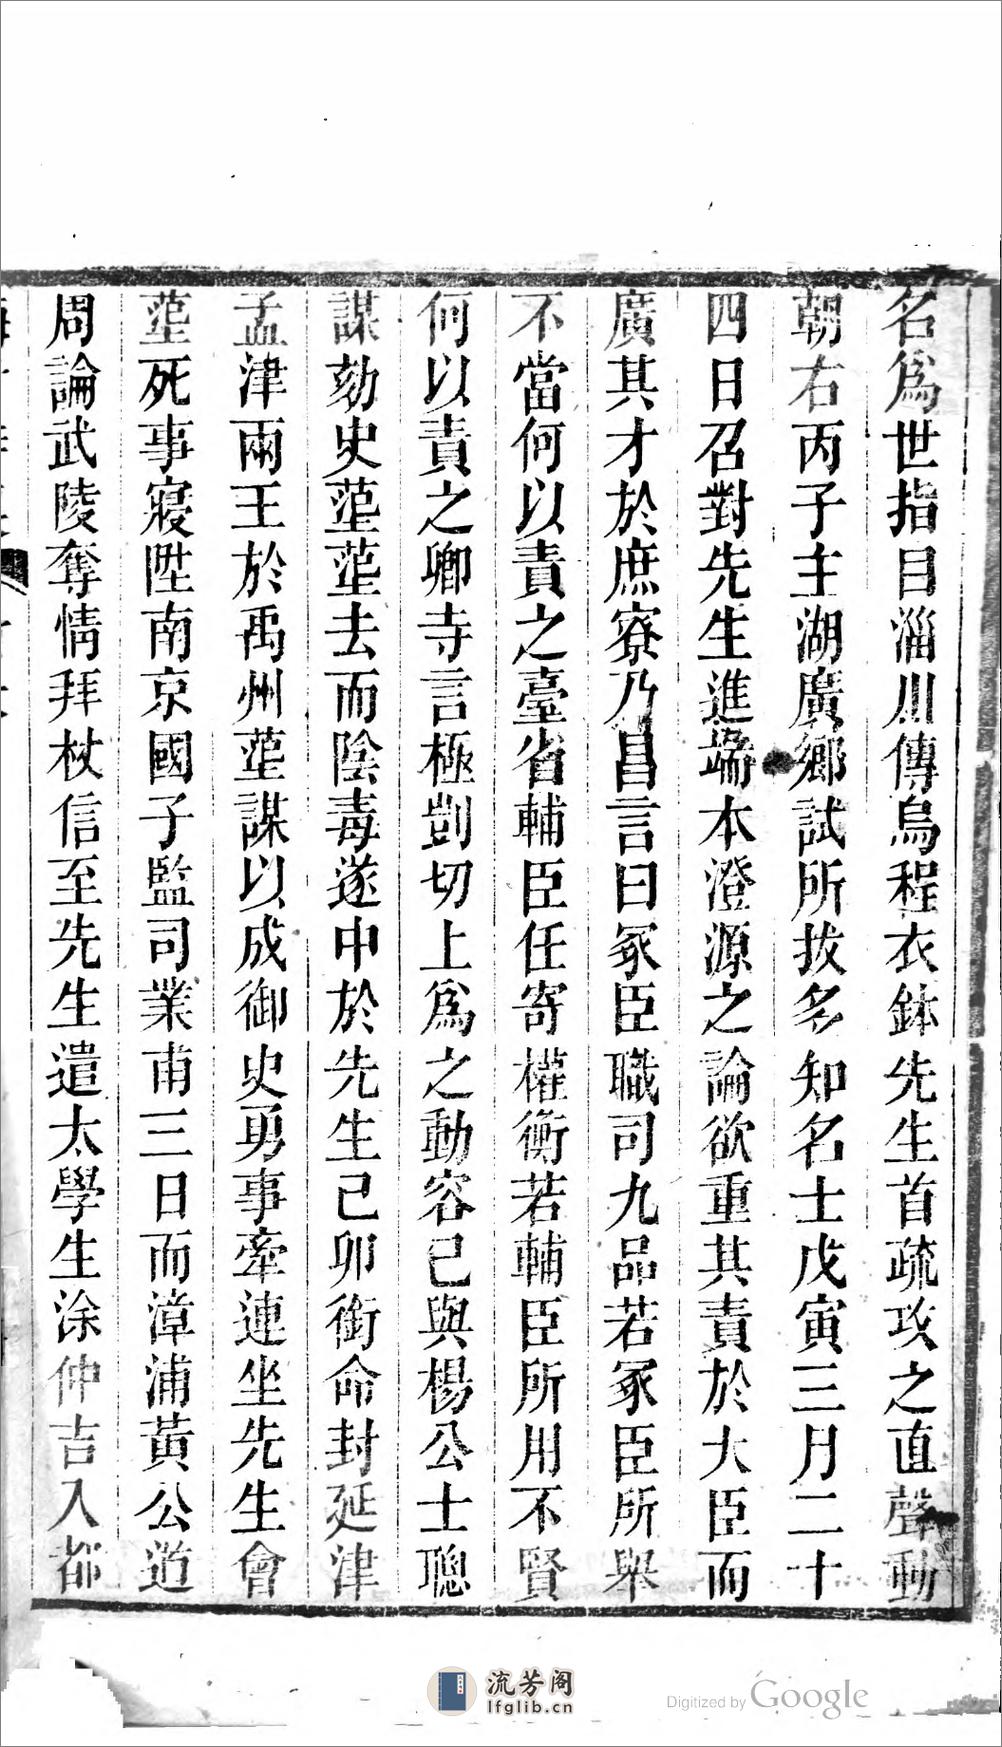 名爲世指目淄川傳烏程衣鉢先生首疏攻之直聲動
朝右丙子主湖廣鄉試所拔多知名士戊寅三月二十
四日召對先生進端本澄源之論欲重其責於大臣而
廣其才於庶寮乃昌言曰冢臣職司九品若冢臣所舉
不當何以責之臺省輔臣任寄權衡若輔臣所用不賢
何以責之卿寺言極剴切上爲之動容已與楊公士聰
謀劾史𡎊𡎊去而陰毒遂中於先生己卯銜命封延津
孟津兩王於禹州𡎊謀以成御史勇事牽連坐先生會
𡎊死事寢陞南京國子監司業甫三日而漳浦黃公道
周論武陵奪情拜杖信至先生遣太學生涂仲吉入都
流芳阁
lfglib.cn
Digitized by Google